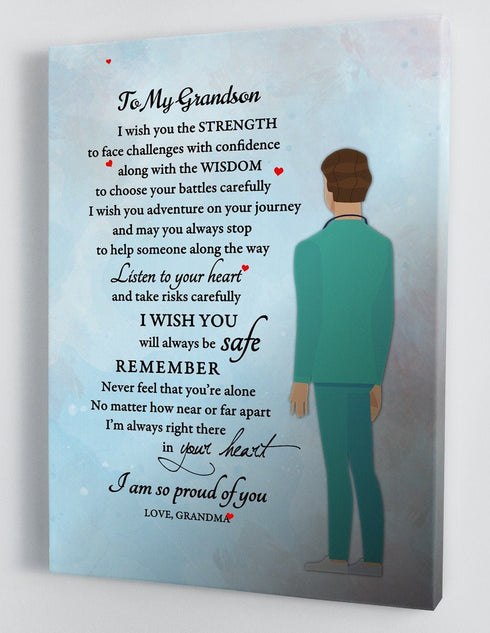 To My Grandson
I wish you the STRENGTH
to face challenges with confidence
along with the WISDOM
to choose your battles carefully
I wish you adventure on your journey
and may you always stop
to help someone along the way
Listen to your heart
and take risks carefully
I WISH YOU
will always be safe
REMEMBER
Never feel that you're alone
No matter how near or far apart
I'm always right there
in your heart
I am so proud of you
LOVE, GRANDMA